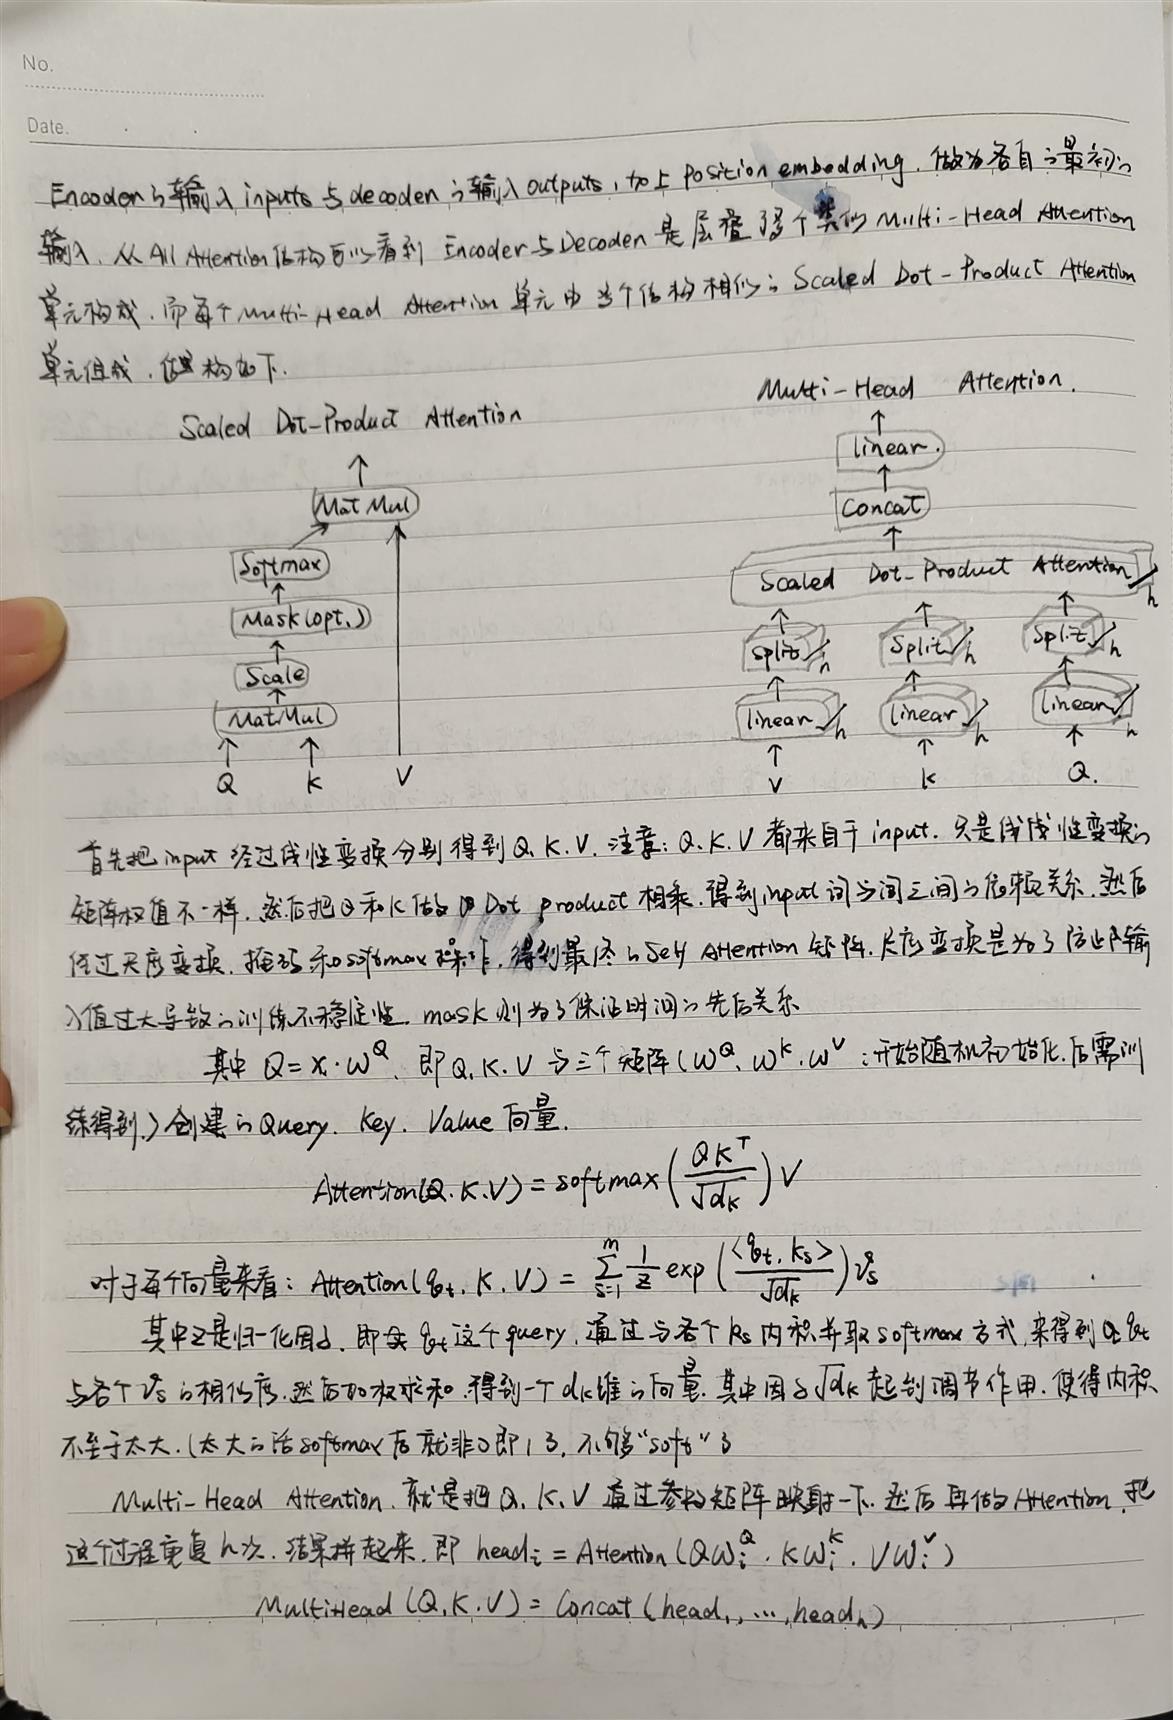 No.
Date.
Encoder的输入inputs与decoder的输入outputs,加上position embedding,做为各自的最初的
输入,从All Attention结构可以看到 Encoder与Decoder是层叠了多个类似Multi-Head Attention
单元构成,而每个Multi-Head Attention单元由多个结构相似的Scaled Dot-Product Attention
单元组成,结构如下.
Scaled Dot-Product Attention
MatMul
Softmax
Mask(opt.)
Scale
MatMul
Q K V
Multi-Head Attention.
linear.
Concat
Scaled Dot-Product Attention h
Split h Split h Split h
linear h linear h linear h
V K Q.
首先把input经过线性变换分别得到Q、K、V.注意:Q、K、V都来自于input,只是线性变换的
矩阵权值不一样,然后把Q和K做Dot product相乘,得到input词与词之间的依赖关系,然后
经过尺度变换、掩码和softmax操作,得到最终的Self Attention矩阵,尺度变换是为了防止输
入值过大导致的训练不稳定性,mask则为了保证时间的先后关系
其中 Q=x·W^Q,即Q、K、V与三个矩阵(W^Q、W^K、W^V:开始随机初始化,后需训
练得到.)创建的Query、Key、Value向量.
Attention(Q.K.V)=softmax(QK^T/√d_K)V
对于每个向量来看:Attention(q_t,K,V)=∑_{s=1}^{m} 1/z exp(<q_t,k_s>/√d_k)v_s
其中z是归一化因子,即求q_t这个query,通过与各个k_s内积并取softmax方式,来得到q_t
与各个v_s的相似度,然后加权求和,得到一个d_k维的向量.其中因子√d_k起到调节作用,使得内积
不至于太大.(太大的话softmax后就非0即1了,不够"soft"了
Multi-Head Attention,就是把Q、K、V通过参数矩阵映射一下,然后再做Attention,把
这个过程重复h次,结果拼起来,即 head_i=Attention(QW_i^Q,KW_i^K,VW_i^V)
MultiHead(Q,K,V)=Concat(head_1,…,head_h)